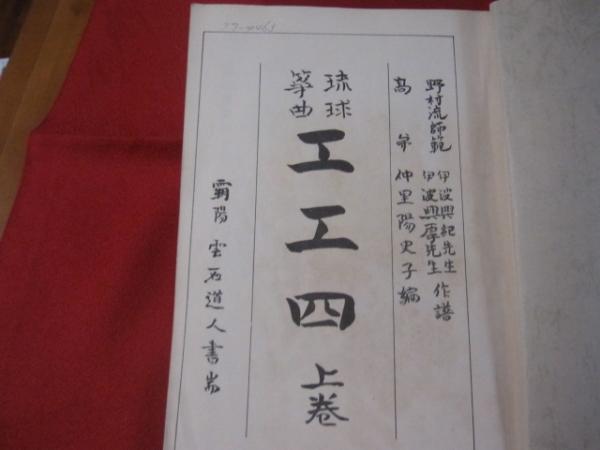 野村流師範 伊波興紀先生
伊波興厚先生 作譜
高弟 仲里陽史子編
琉球
箏曲
工工四 上巻
霸陽 雲石道人書